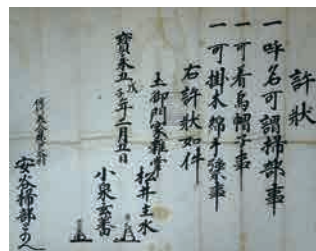 許状
一 呼名可謂掃部事
一 可着烏帽子事
一 可掛木綿手繦事
右許状如件
土御門家雑掌
松井主水
寶永五戊子年二月廿日
小泉
安谷掃部とのへ